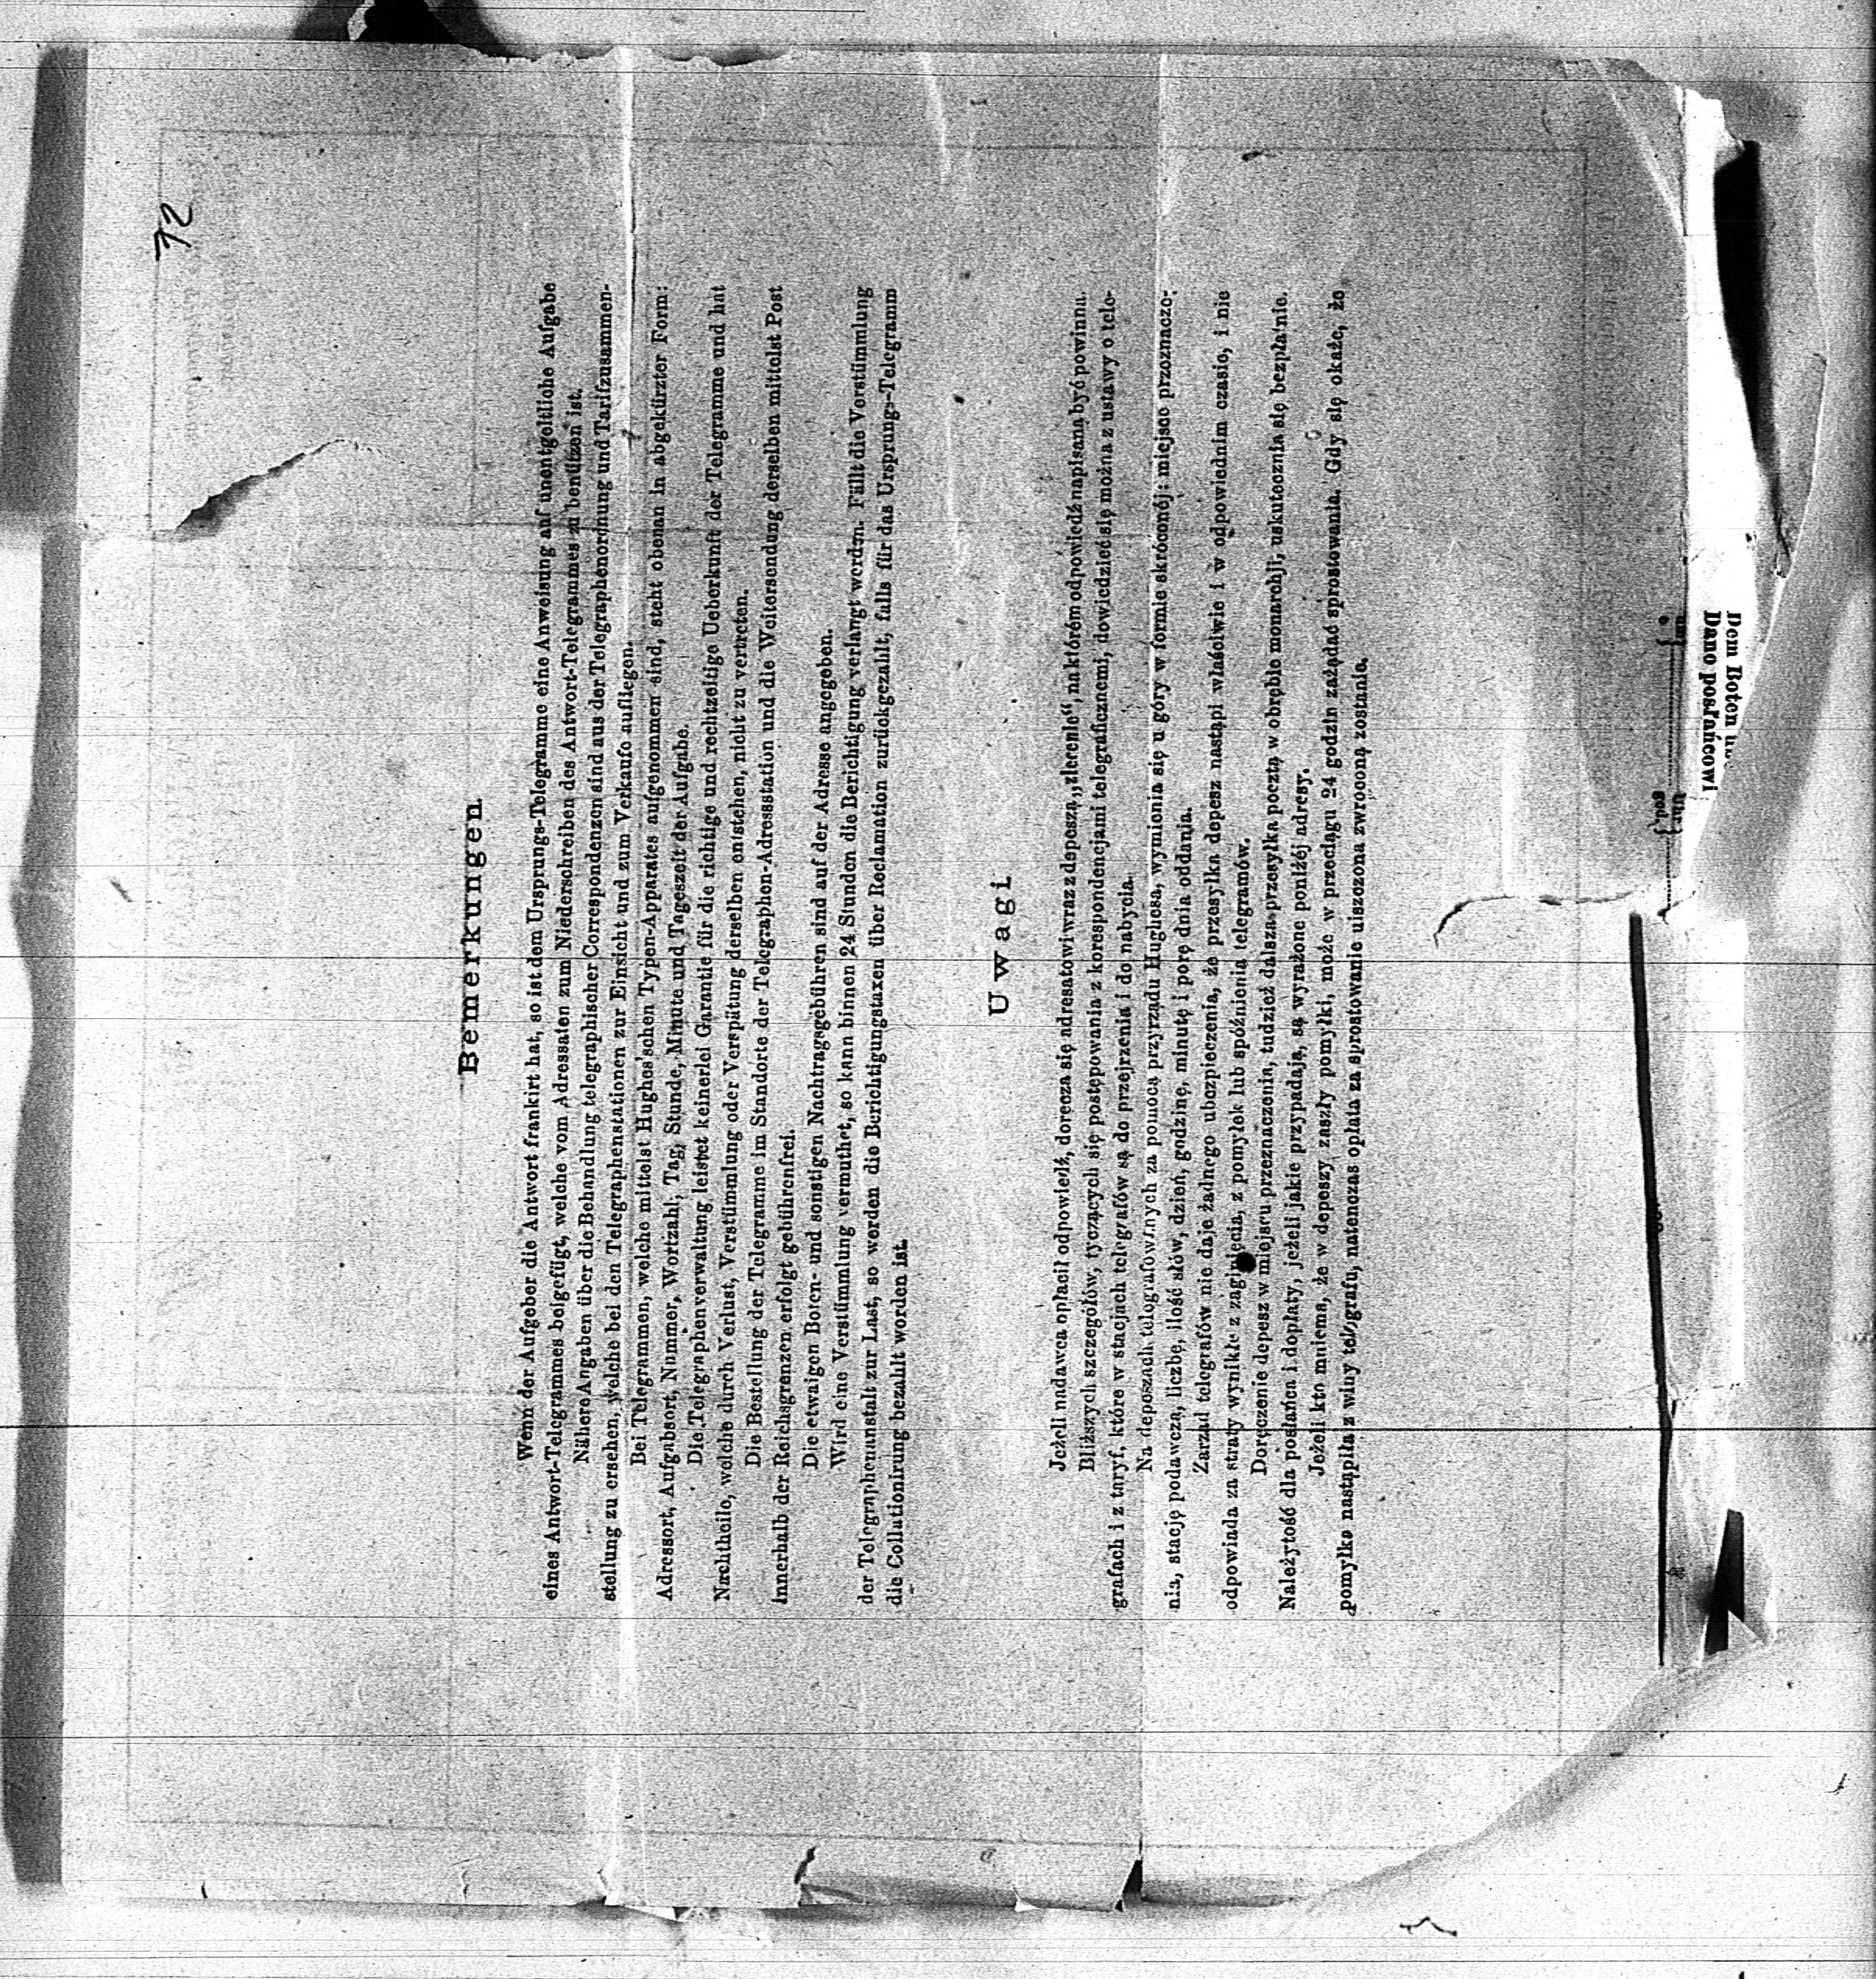 72
Bemerkungen
Wenn der Aufgeber die Antwort frankirt hat, so ist dem Ursprungs-Telegramme eine Anweisung auf unentgeltliche Aufgabe
eines Antwort-Telegrammes beigefügt, welche vom Adressaten zum Niederschreiben des Antwort-Telegrammes zu benützen ist.
Nähere Angaben über die Behandlung telegraphischer Correspondenzen sind aus der Telegraphenordnung und Tarifzusammen-
stellung zu ersehen, welche bei den Telegraphenstationen zur Einsicht und zum Verkaufe aufliegen.
Bei Telegrammen, welche mittelst Hughes'schen Typen-Apparates aufgenommen sind, steht obenan in abgekürzter Form:
Adressort, Aufgabsort, Nummer, Wortzahl, Tag, Stunde, Minute und Tageszeit der Aufgabe.
Die Telegraphenverwaltung leistet keinerlei Garantie für die richtige und rechtzeitige Ueberkunft der Telegramme und hat
Nachtheile, welche durch Verlust, Verstümmlung oder Verspätung derselben entstehen, nicht zu vertreten.
Die Bestellung der Telegramme im Standorte der Telegraphen-Adressstation und die Weitersendung derselben mittelst Post
innerhalb der Reichsgrenzen erfolgt gebührenfrei.
Die etwaigen Boten- und sonstigen Nachtragsgebühren sind auf der Adresse angegeben.
Wird eine Verstümmlung vermuthet, so kann binnen 24 Stunden die Berichtigung verlangt werden. Fällt die Verstümmlung
der Telegraphenanstalt zur Last, so werden die Berichtigungstaxen über Reclamation zurückgezahlt, falls für das Ursprungs-Telegramm
die Collationirung bezahlt worden ist.
Uwagi
Jeżeli nadawca opłacił odpowiedź, doręcza się adresatowi wraz z depeszą „zlecenie“, na którém odpowiedź napisaną być powinna.
Bliższych szczegółów, tyczących się postępowania z korespondencjami telegraficznemi, dowiedzieć się można z ustawy o tele-
grafach i z taryf, które w stacjach telegrafów są do przejrzenia i do nabycia.
Na depeszach telegrafowanych za pomocą przyrządu Hughesa, wymienia się u góry w formie skróconéj: miejsce przeznacze-
nia, stację podawczą, liczbę, ilość słów, dzień, godzinę, minutę i porę dnia oddania.
Zarząd telegrafów nie daje żadnego ubezpieczenia, że przesyłka depesz nastąpi właściwie i w odpowiednim czasie, i nie
odpowiada za straty wynikłe z zaginięcia, z pomyłek lub spóźnienia telegramów.
Doręczenie depesz w miejscu przeznaczenia, tudzież dalsza przesyłka pocztą w obrębie monarchji, uskutecznia się bezpłatnie.
Należytość dla posłańca i dopłaty, jeżeli jakie przypadają, są wyrażone poniżéj adresy.
Jeżeli kto mniema, że w depeszy zaszły pomyłki, może w przeciągu 24 godzin zażądać sprostowania. Gdy się okaże, że
pomyłka nastąpiła z winy telegrafu, natenczas opłata za sprostowanie uiszczona zwróconą zostanie.
Dem Boten
Dano posłańcowi
um
o
Uhr
god.